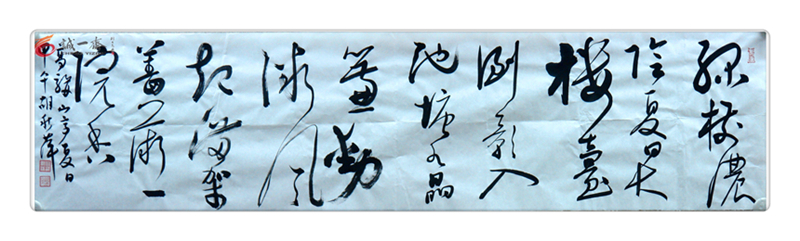 綠樹濃
陰夏日長
樓臺
倒影入
池塘水晶
簾動
微風
起滿架
薔薇一
院香
高駢山亭夏日
甲午胡秋萍